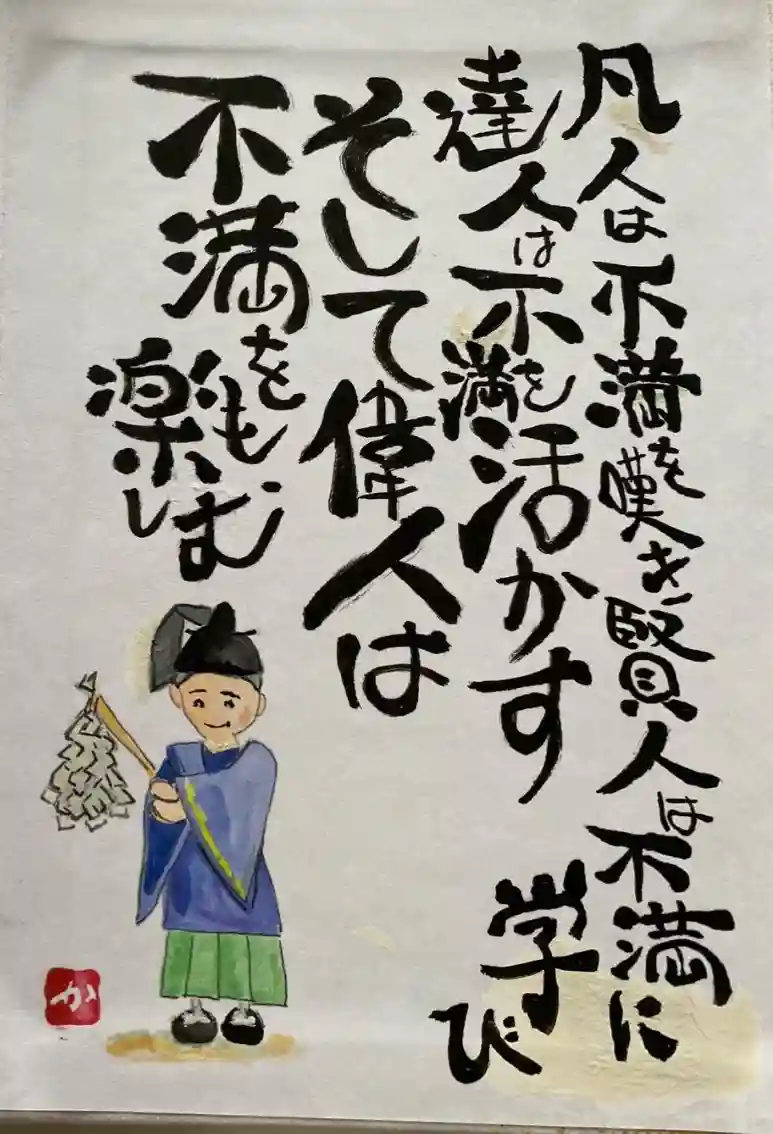 凡人は不満を嘆き賢人は不満に
学び
達人は不満を活かす
そして偉人は
不満をも
楽しむ
か